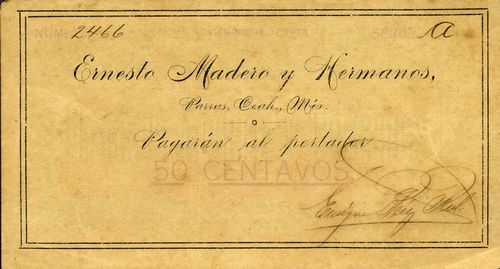 NUM. 2466 SERIE A
Ernesto Madero y Hermanos,
Parras, Coah., Méx.
Pagarán al portador
50 CENTAVOS
Enrique